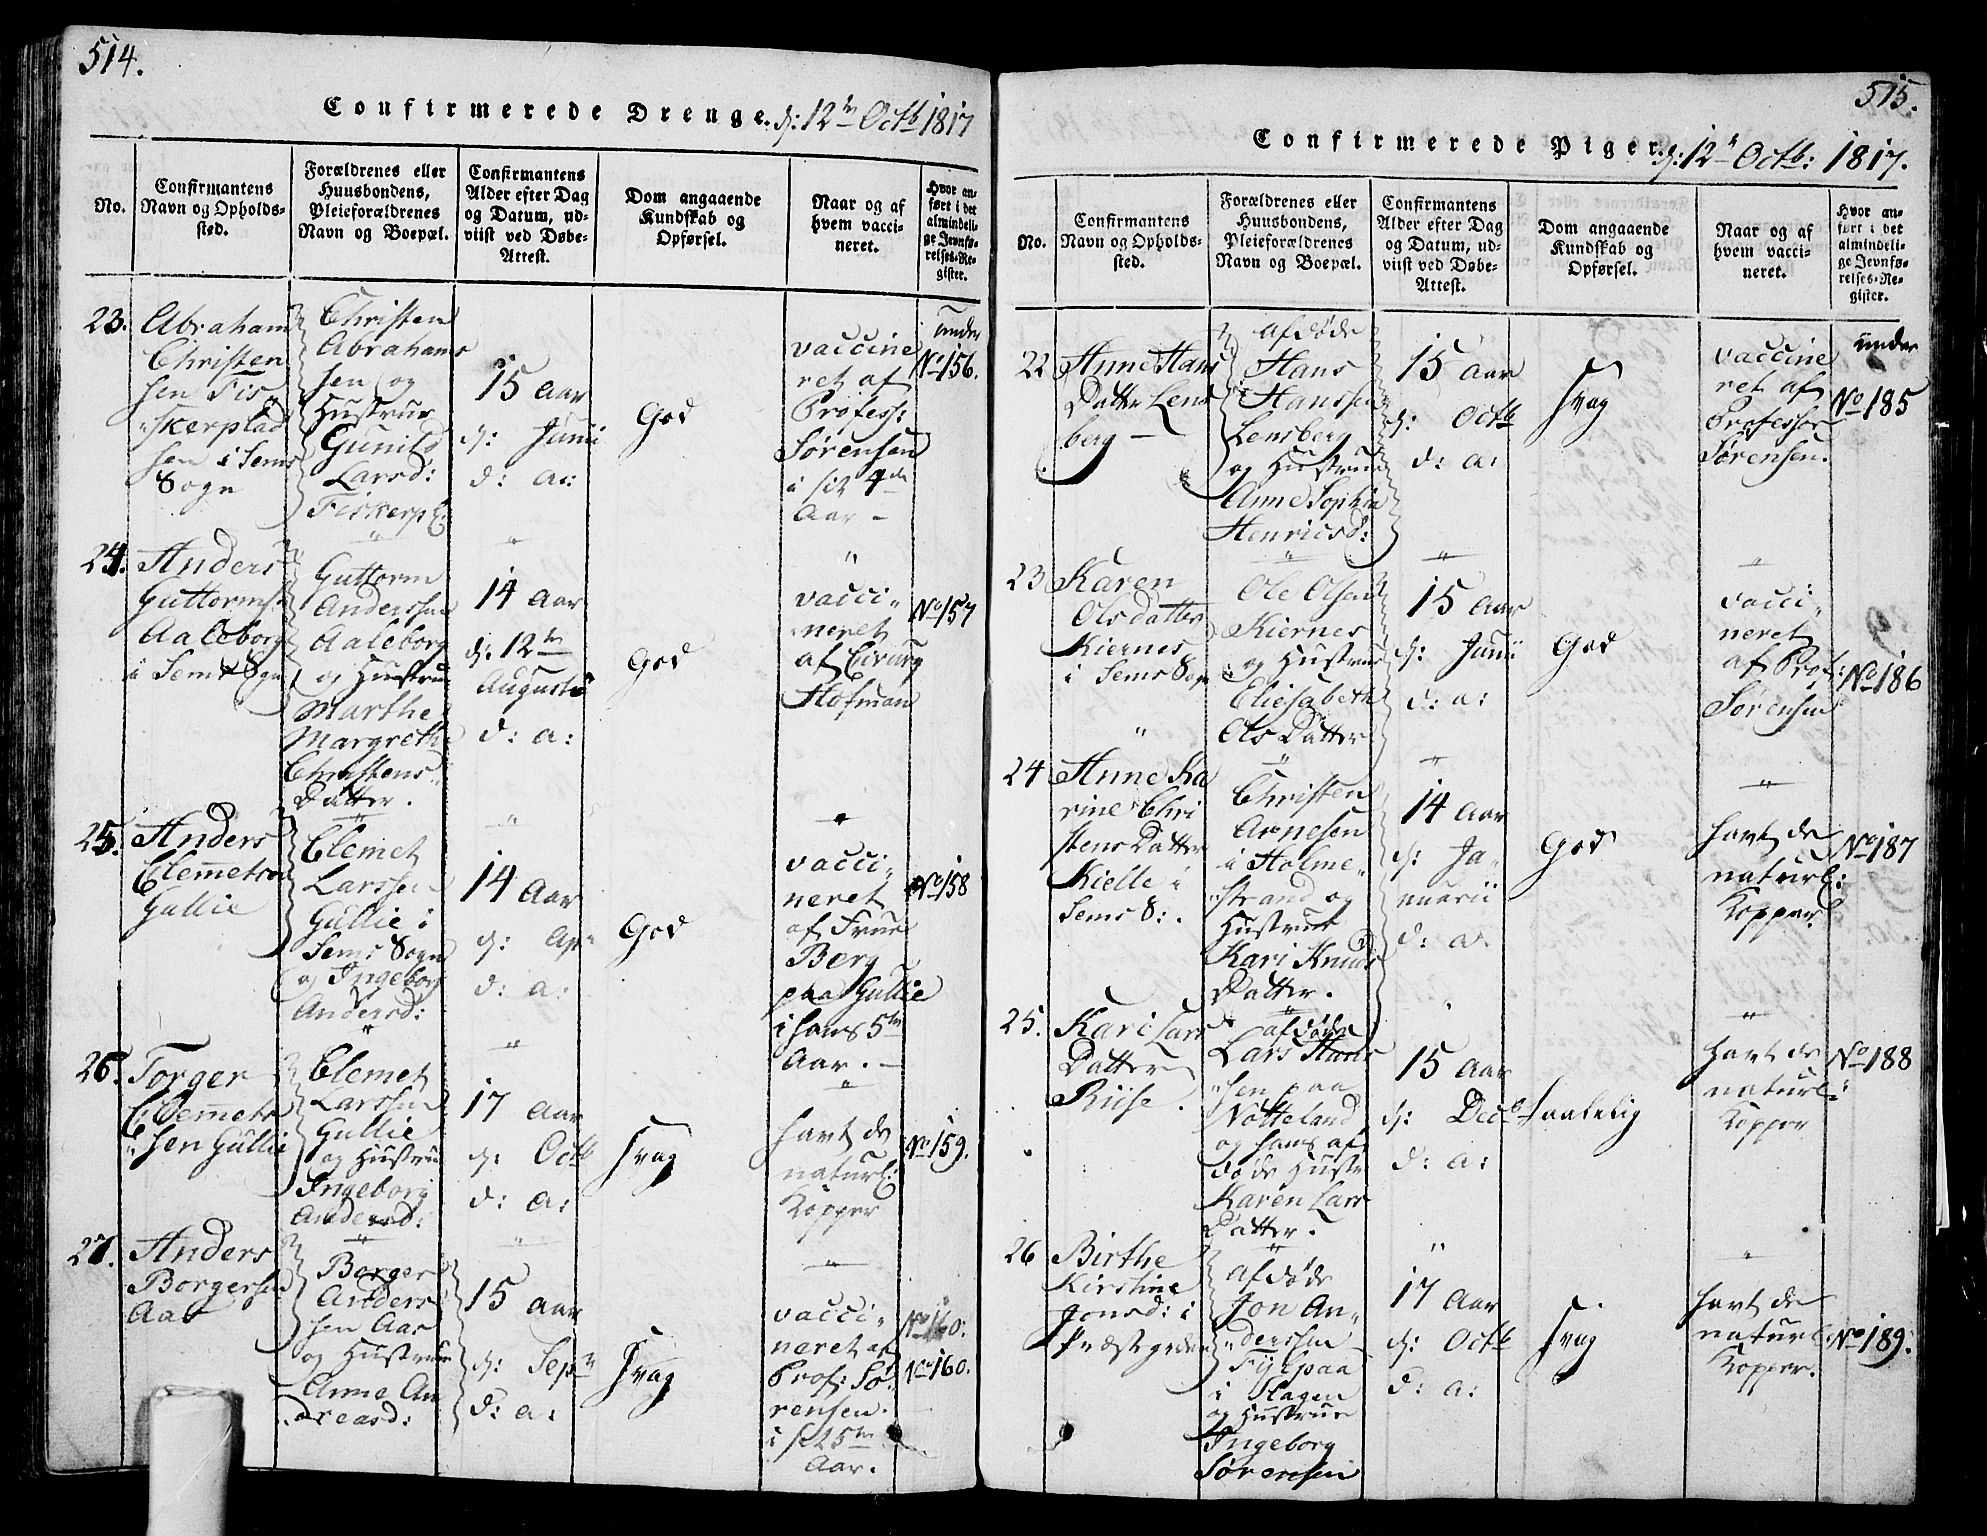 514.
Confirmerede Drenge. d: 12te Octb 1817
No.
Confirmantens
Navn og Opholds-
sted.
Forældrenes eller
Huusbondens,
Pleieforældrenes
Navn og Boepæl.
Confirmantens
Alder efter Dag
og Datum, ud-
viist ved Døbe-
Attest.
Dom angaaende
Kundskab og
Opførsel.
Naar og af
hvem vacci-
neret.
Hvor an-
ført i det
almindeli-
ge Jevnfø-
relses-Re-
gister.
23.
Abraham
Christen
sen Fis„
„skerplad
sen i Sems
Sogn
Christen
Abrahams
sen og
Hustrue
Gunild
Larsd:
Fiskerpl:
15 Aar
d: Junii
d: a:
God
vaccine
ret af
Profess:
Sørensen
i sit 4de
Aar –
under
No 156.
24.
Anders
Guttorms
Aaleborg
i Sems Sogn
Guttorm
Anderssen
Aaleborg
og Hustrue
Marthe
Margrethe
Christens
Datter.
14 Aar
d: 12te
Augusti
d: a:
God
vacci„
neret
af Cirurg
Hofman
No 157
25.
Anders
Clemetsen
Gullie
Clemet
Larssen
Gullie i
Sems Sogn
og Ingeborg
Andersd:
14 Aar
d: Ap
d: a:
God
vacci„
neret
af Frue
Berg
paa Gullie
i hans 5te
Aar. –
No 158
26.
Torger
Clemets
„sen Gullie
Clemet
Larssen
Gullie
og Hustrue
Ingeborg
Andersd:
17 Aar
d: Octb
d: a:
svag
havt de
naturl:
Kopper
No 159.
27.
Anders
Borgersen
Aas
Borger
Anders
sen Aas
og Hustrue
Anne An
dreasd:
15 Aar
d: Sepr
d: a:
svag
vacci„
neret af
Prof: Sø„
rensen.
i sit 5te
Aar.
No 160.
No 160.
515.
Confirmerede Piger. d: 12te Octb: 1817.
No.
Confirmantens
Navn og Opholds-
sted.
Forældrenes eller
Huusbondens,
Pleieforældrenes
Navn og Boepæl.
Confirmantens
Alder efter Dag
og Datum, ud-
viist ved Døbe-
Attest.
Dom angaaende
Kundskab og
Opførsel.
Naar og af
hvem vacci-
neret.
Hvor an-
ført i det
almindeli-
ge Jevnfø-
relses-Re-
gister.
22
Anne Hans
Datter Lens
berg –
afdøde
Hans
Hanssen
Lensberg
og Hustrue
Anne Sophia
Henricsd:
15 Aar
d: Octb
d: a:
svag
vaccine
ret af
Professor
Sørensen.
under
No 185
23
Karen
Olsdatter
Kiernes
i Sems Sogn
Ole Olsen
Kiernes
og Hustrue
Eliesabeth
Ols Datter
15 Aar
d: Junii
d: a:
God
vacci„
neret
af Prof:
Sørensen
No 186
24
Anne Ka
rine Chri
stens Datter
Kielle i
Sems S:.
Christen
Arnesen
i Holme„
„strand og
Hustrue
Kari Knuds
Datter.
14 Aar
d: Ja„
nuarii
d: a.
God
havt de
naturl:
Kopper.
No 187
25.
Kari Lars
Datter
Riise.
afdøde
Lars Hans
„sen paa
Notteland
og hans af
døde Hustr
Karen Lars
Datter.
15 Aar
d: Decb
d: a:
Maadelig
havt de
naturl:
Kopper
No 188
26
Birthe
Kirstine
Jonsd: i
Præstgrden
afdøde
Jon An„
„derssen
Fylpaa
i Slagen
og Hustrue
Ingeborg
Sørensen
17 Aar
d: Octb
d: a:
svag
havt de
naturl:
Kopper.
No 189.